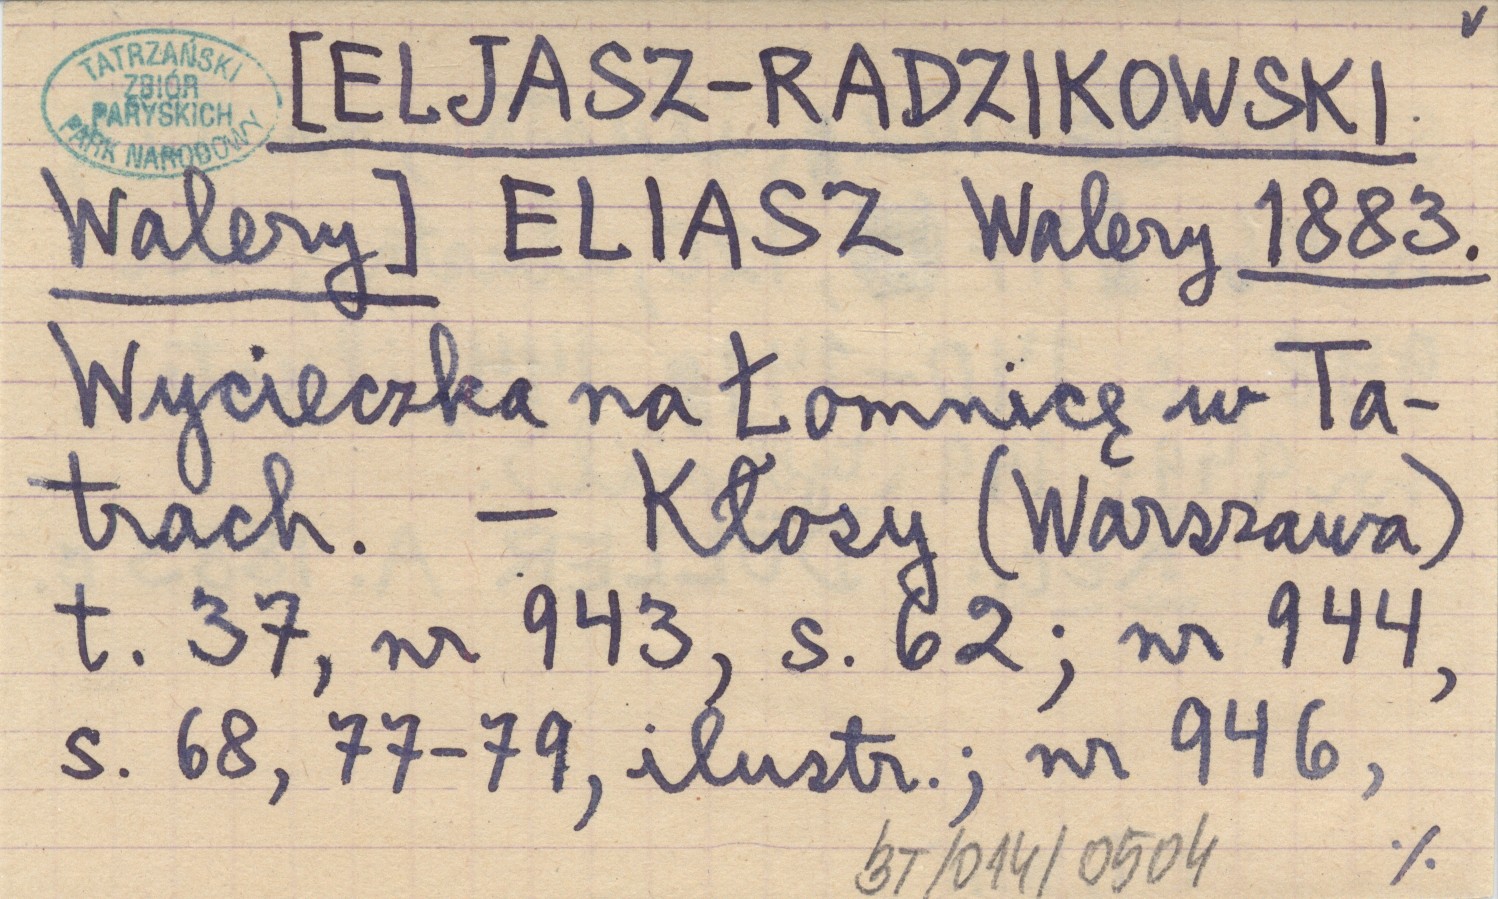 v
TATRZAŃSKI
ZBIÓR
PARYSKICH
PARK NARODOWY
[ELJASZ-RADZIKOWSKI
Walery] ELIASZ Walery 1883.
Wycieczka na Łomnicę w Ta-
trach. – Kłosy (Warszawa)
t. 37, nr 943, s. 62; nr 944,
s. 68, 77-79, ilustr.; nr 946,
BT/014/0504
./.